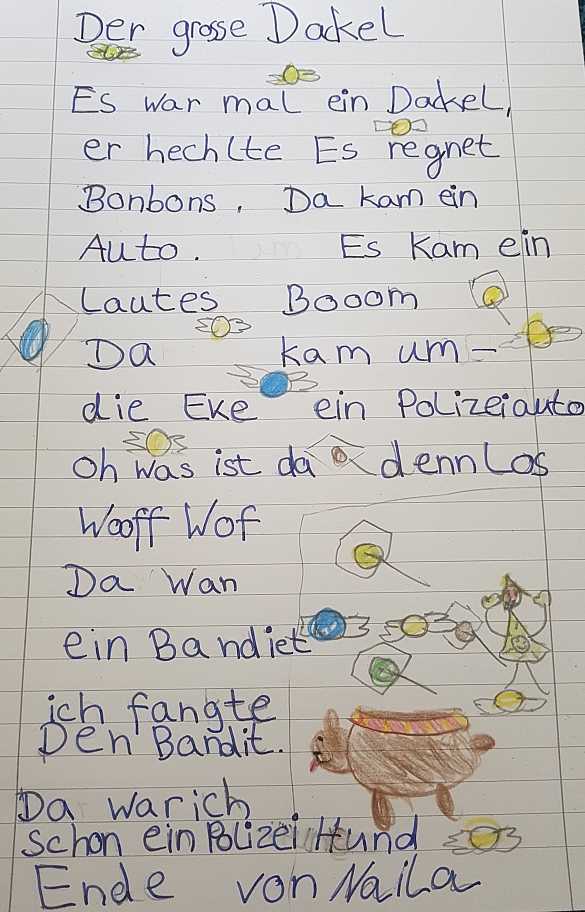 Der grosse Dackel
Es war mal ein Dackel,
er hechlte Es regnet
Bonbons. Da kam ein
Auto. Es kam ein
Lautes Booom
Da kam um-
die Eke ein Polizeiauto
oh was ist da denn Los
Wooff Wof
Da wan
ein Bandiet
ich fangte
Den Bandit.
Da war ich
schon ein Polizei Hund
Ende von Naila